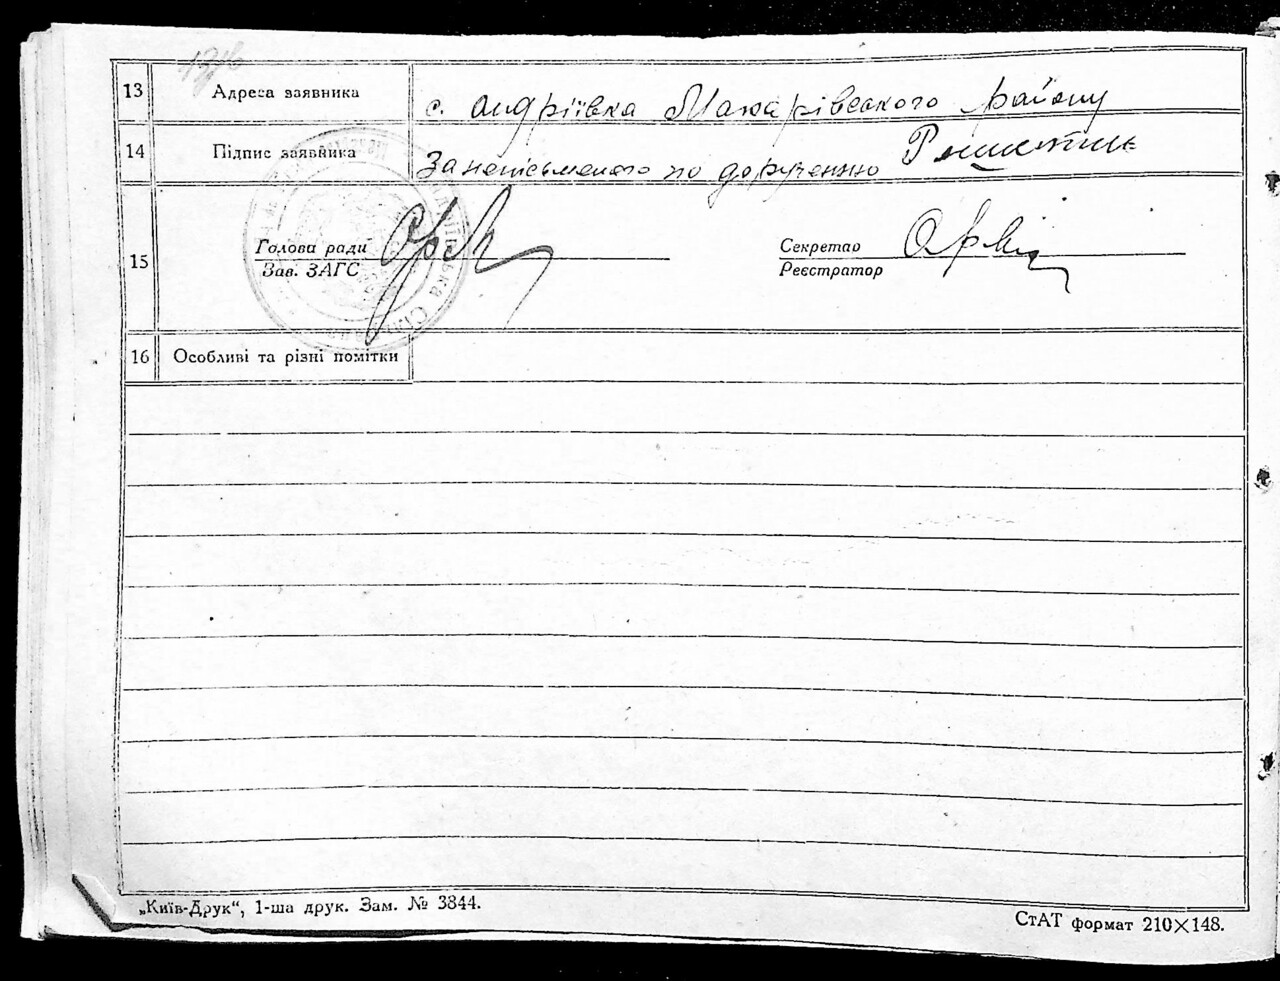 13 Адреса заявника с. Андріївка Макарівського району
14 Підпис заявника За неписьменого по дорученню
15
Голова ради
Зав. ЗАГС
Секретар
Реєстратор
16 Особливі та різні помітки
„Київ-Друк“, 1-ша друк. Зам. № 3844.
СтАТ формат 210×148.